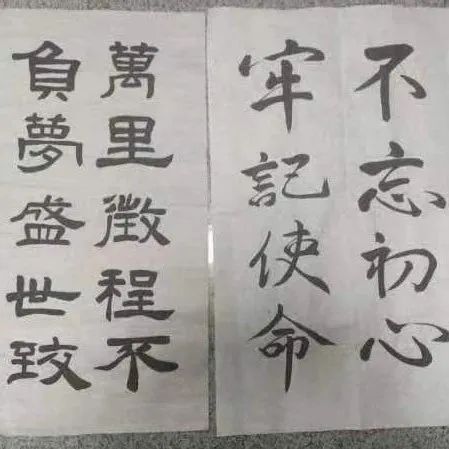 不忘初心
牢記使命
萬里徵程不
負夢盛世致